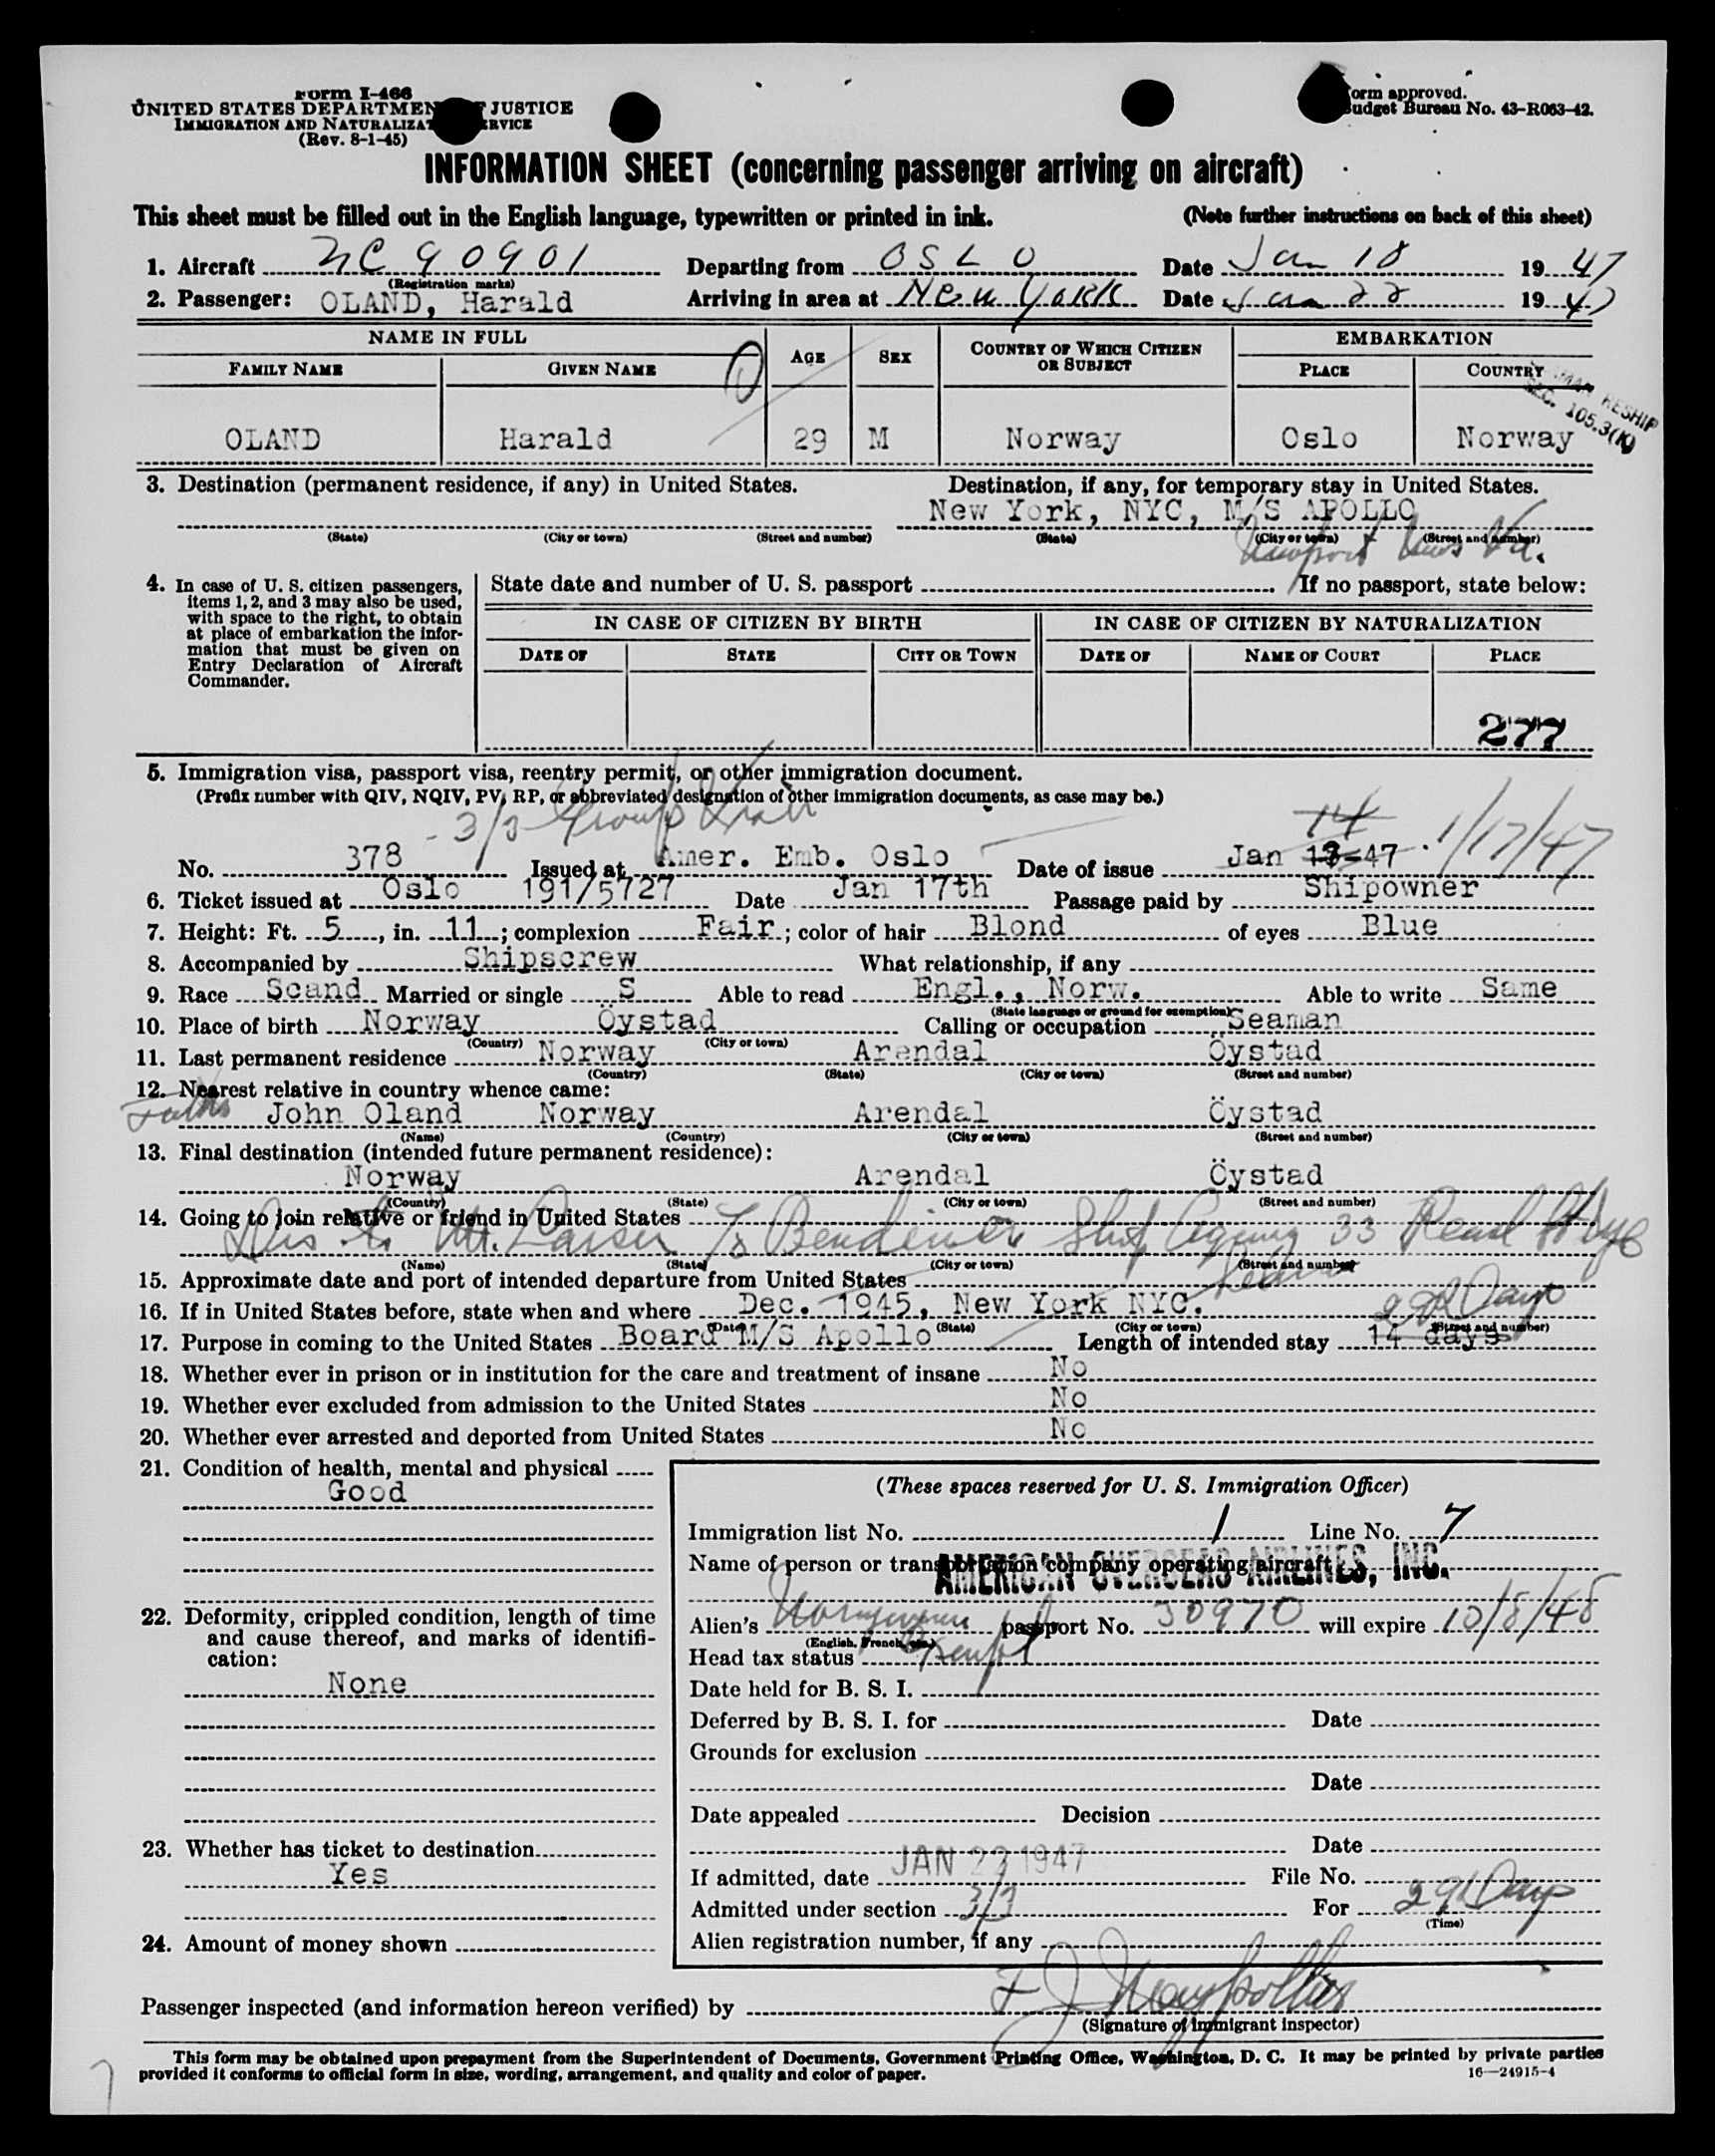 Form I-466
UNITED STATES DEPARTMENT OF JUSTICE
IMMIGRATION AND NATURALIZATION SERVICE
(Rev. 8-1-45)
Form approved.
Budget Bureau No. 43-R063-42.
INFORMATION SHEET (concerning passenger arriving on aircraft)
This sheet must be filled out in the English language, typewritten or printed in ink. (Note further instructions on back of this sheet)
1. Aircraft NC 90901 Departing from OSLO Date Jan 18 1947
(Registration marks)
2. Passenger: OLAND, Harald Arriving in area at New York Date Jan 22 1947
NAME IN FULL AGE SEX COUNTRY OF WHICH CITIZEN OR SUBJECT EMBARKATION
FAMILY NAME GIVEN NAME PLACE COUNTRY
RESHIP
SEC. 105.3(K)
OLAND Harald 29 M Norway Oslo Norway
3. Destination (permanent residence, if any) in United States. Destination, if any, for temporary stay in United States.
New York, NYC, M/S APOLLO
(State) (City or town) (Street and number) (State) (City or town) (Street and number)
Newport News Va.
4. In case of U. S. citizen passengers, items 1, 2, and 3 may also be used, with space to the right, to obtain at place of embarkation the information that must be given on Entry Declaration of Aircraft Commander.
State date and number of U. S. passport . If no passport, state below:
IN CASE OF CITIZEN BY BIRTH IN CASE OF CITIZEN BY NATURALIZATION
DATE OF STATE CITY OR TOWN DATE OF NAME OF COURT PLACE
277
5. Immigration visa, passport visa, reentry permit, or other immigration document.
(Prefix number with QIV, NQIV, PV, RP, or abbreviated designation of other immigration documents, as case may be.)
3/3 Group
14 1/17/47
No. 378 Issued at Amer. Emb. Oslo Date of issue Jan 13-47
6. Ticket issued at Oslo 191/5727 Date Jan 17th Passage paid by Shipowner
7. Height: Ft. 5, in. 11; complexion Fair; color of hair Blond of eyes Blue
8. Accompanied by Shipscrew What relationship, if any
9. Race Scand. Married or single S Able to read Engl., Norw. Able to write Same
(State language or ground for exemption)
10. Place of birth Norway Öystad Calling or occupation Seaman
(Country) (City or town)
11. Last permanent residence Norway Arendal Öystad
(Country) (State) (City or town) (Street and number)
12. Nearest relative in country whence came:
Father John Oland Norway Arendal Öystad
(Name) (Country) (City or town) (Street and number)
13. Final destination (intended future permanent residence):
Norway Arendal Öystad
(Country) (State) (City or town) (Street and number)
14. Going to join relative or friend in United States
to Mr. Larsen Ship Agency 33 Pearl St NYC
(Name) (State) (City or town) (Street and number)
15. Approximate date and port of intended departure from United States
16. If in United States before, state when and where Dec. 1945, New York NYC.
(Date) (State) (City or town) (Street and number)
29 Days
17. Purpose in coming to the United States Board M/S Apollo Length of intended stay 14 days
18. Whether ever in prison or in institution for the care and treatment of insane No
19. Whether ever excluded from admission to the United States No
20. Whether ever arrested and deported from United States No
21. Condition of health, mental and physical
Good
22. Deformity, crippled condition, length of time and cause thereof, and marks of identification:
None
23. Whether has ticket to destination
Yes
24. Amount of money shown
(These spaces reserved for U. S. Immigration Officer)
Immigration list No. 1 Line No. 7
Name of person or transportation company operating aircraft
AMERICAN OVERSEAS AIRLINES, INC.
Alien's Norwegian passport No. 30970 will expire 10/8/48
(English, French, etc.)
Head tax status Exempt
Date held for B. S. I.
Deferred by B. S. I. for Date
Grounds for exclusion
Date
Date appealed Decision
Date
If admitted, date JAN 22 1947 File No.
Admitted under section 3/3 For 29 Days
(Time)
Alien registration number, if any
Passenger inspected (and information hereon verified) by
(Signature of Immigrant Inspector)
This form may be obtained upon prepayment from the Superintendent of Documents, Government Printing Office, Washington, D. C. It may be printed by private parties
provided it conforms to official form in size, wording, arrangement, and quality and color of paper.
16—24915-4
7